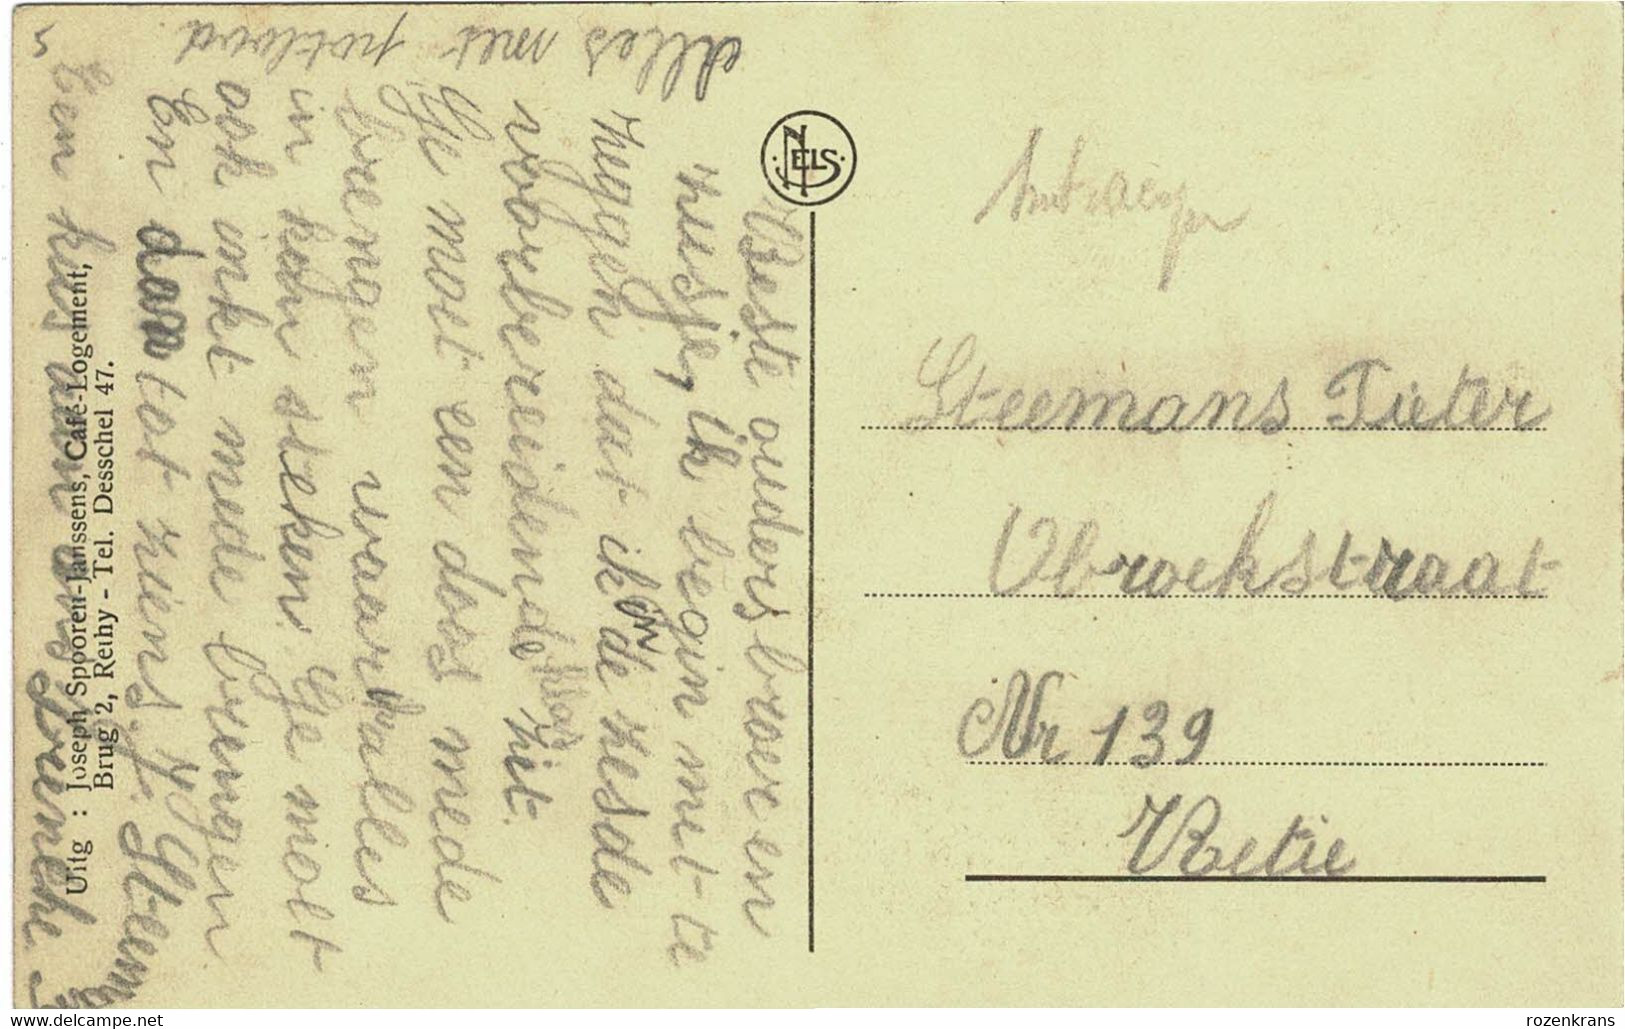 Beste ouders broer en
zusje, ik begin met te
zeggen dat ik in de zesde
voorbereidende klas zit.
Ge moet een doos mede
brengen waar ik alles
in kan steken. Ge moet
ook inkt mede brengen
En dan tot ziens. J. Steem
Een kus aan ons
Alles met potlood
Uitg : Joseph Spooren-Janssens, Café-Logement,
Brug 2, Rethy - Tel. Desschel 47.
NELS
Antwerpen
Steemans Pieter
Obroekstraat
Nr 139
Retie
www.delcampe.net
rozenkrans